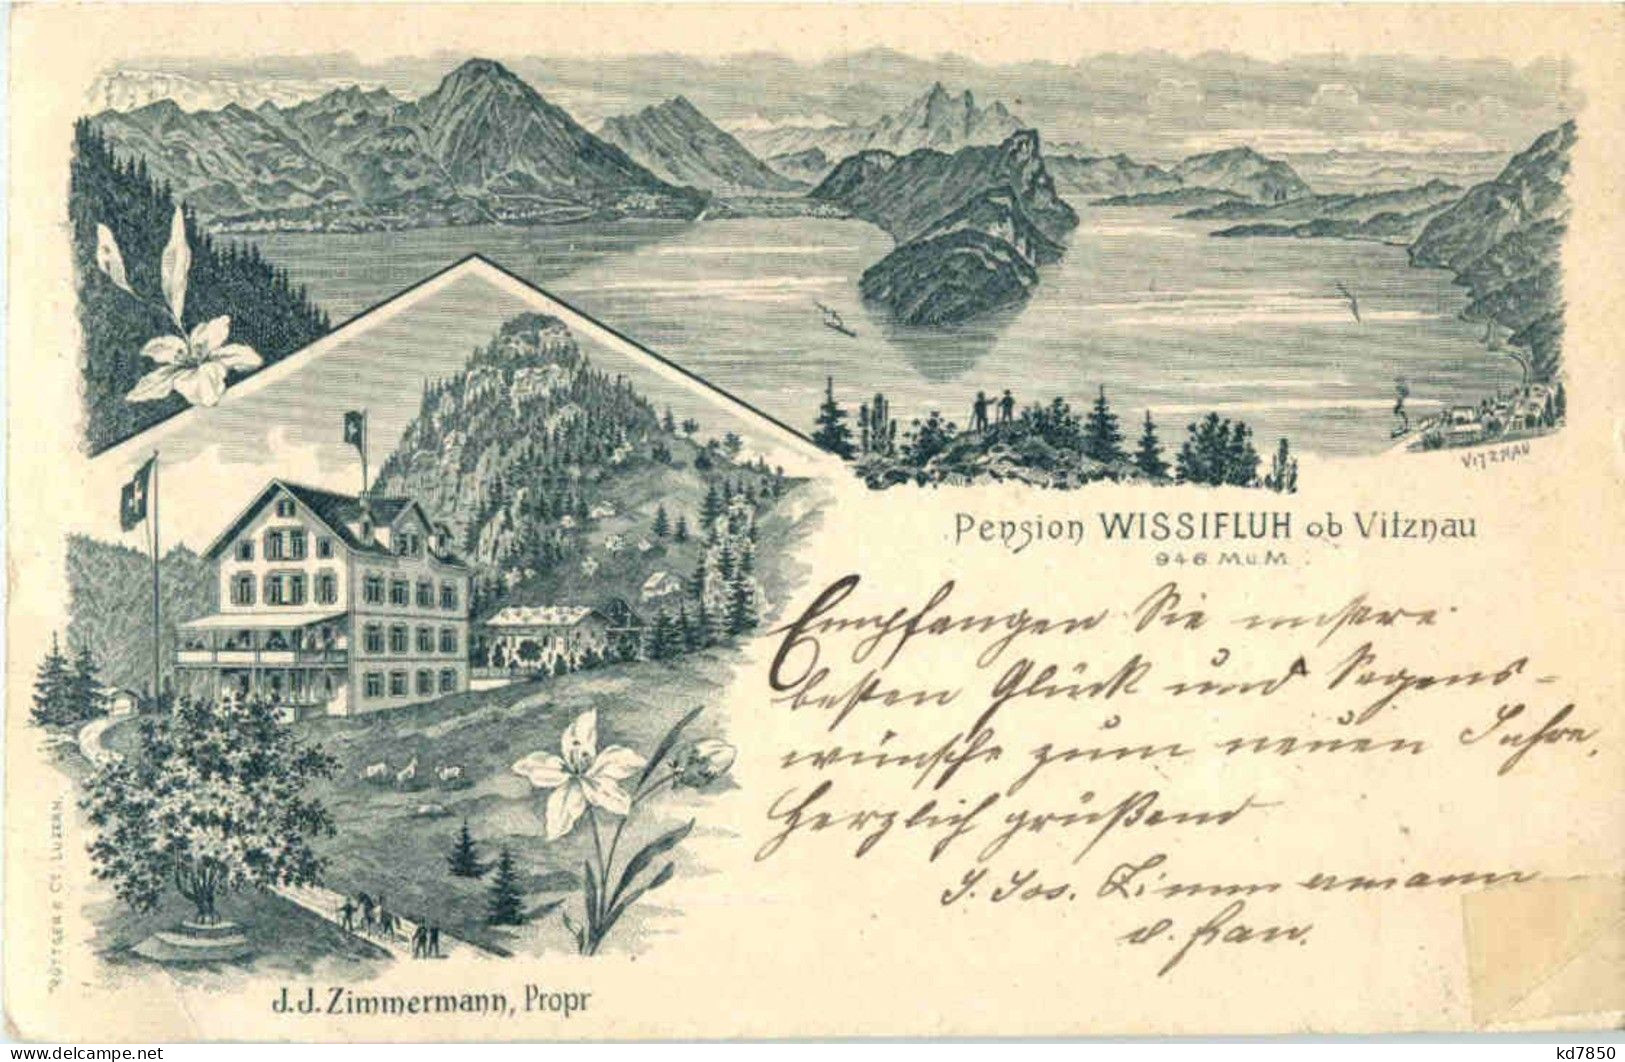 VITZNAU
Pension WISSIFLUH ob Vitznau
946 M.ü.M.
Empfangen Sie unsere
besten Glück und Segens-
wünsche zum neuen Jahre.
Herzlich grüßend
J. Jos. Zimmermann
u. Frau.
RÜTTGER & Cº LUZERN.
J.J. Zimmermann, Propr
delcampe.net
kd7850